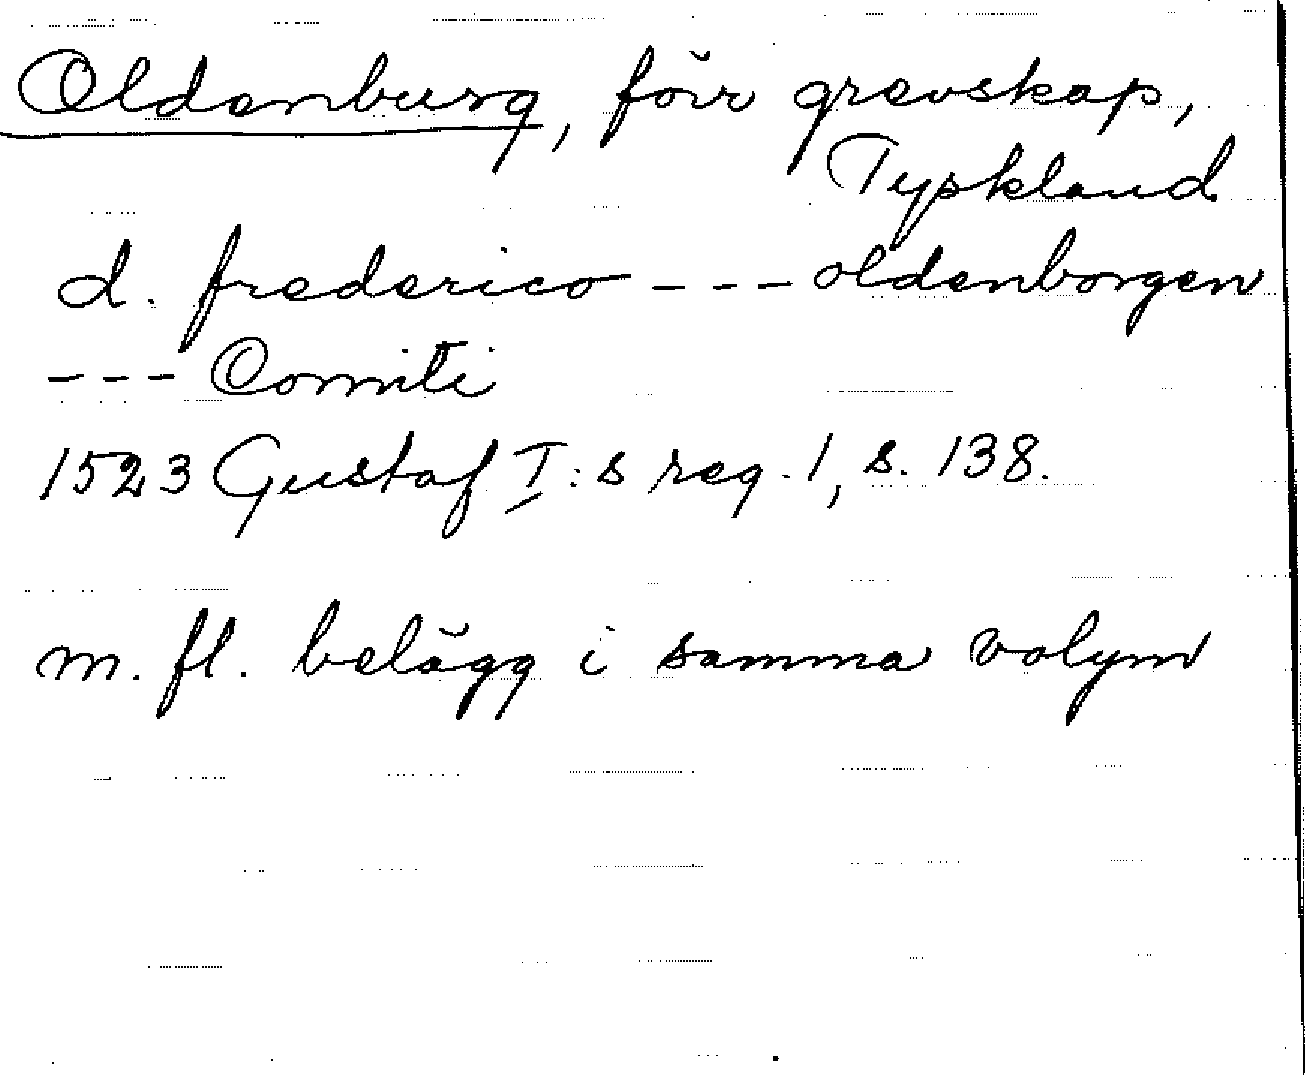 Oldenburg, förr grevskap,
Tyskland
d. frederico --- oldenborgen
--- Comiti
1523 Gustaf I:s reg. 1, s. 138.
m. fl. belägg i samma volym